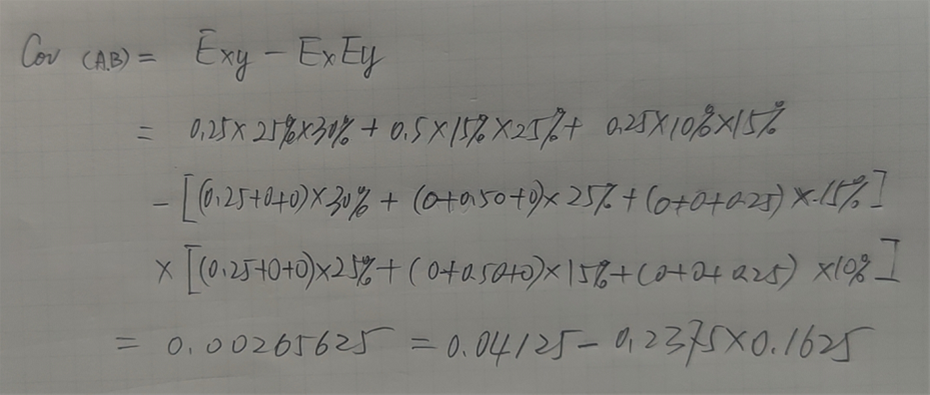 Cov (A,B) = Exy - ExEy
= 0.25×25%×30% + 0.5×15%×25% + 0.25×10%×15%
- [(0.25+0+0)×30% + (0+0.50+0)×25% + (0+0+0.25)×15%]
× [(0.25+0+0)×25% + (0+0.50+0)×15% + (0+0+0.25)×10%]
= 0.00265625 = 0.04125 - 0.2375×0.1625